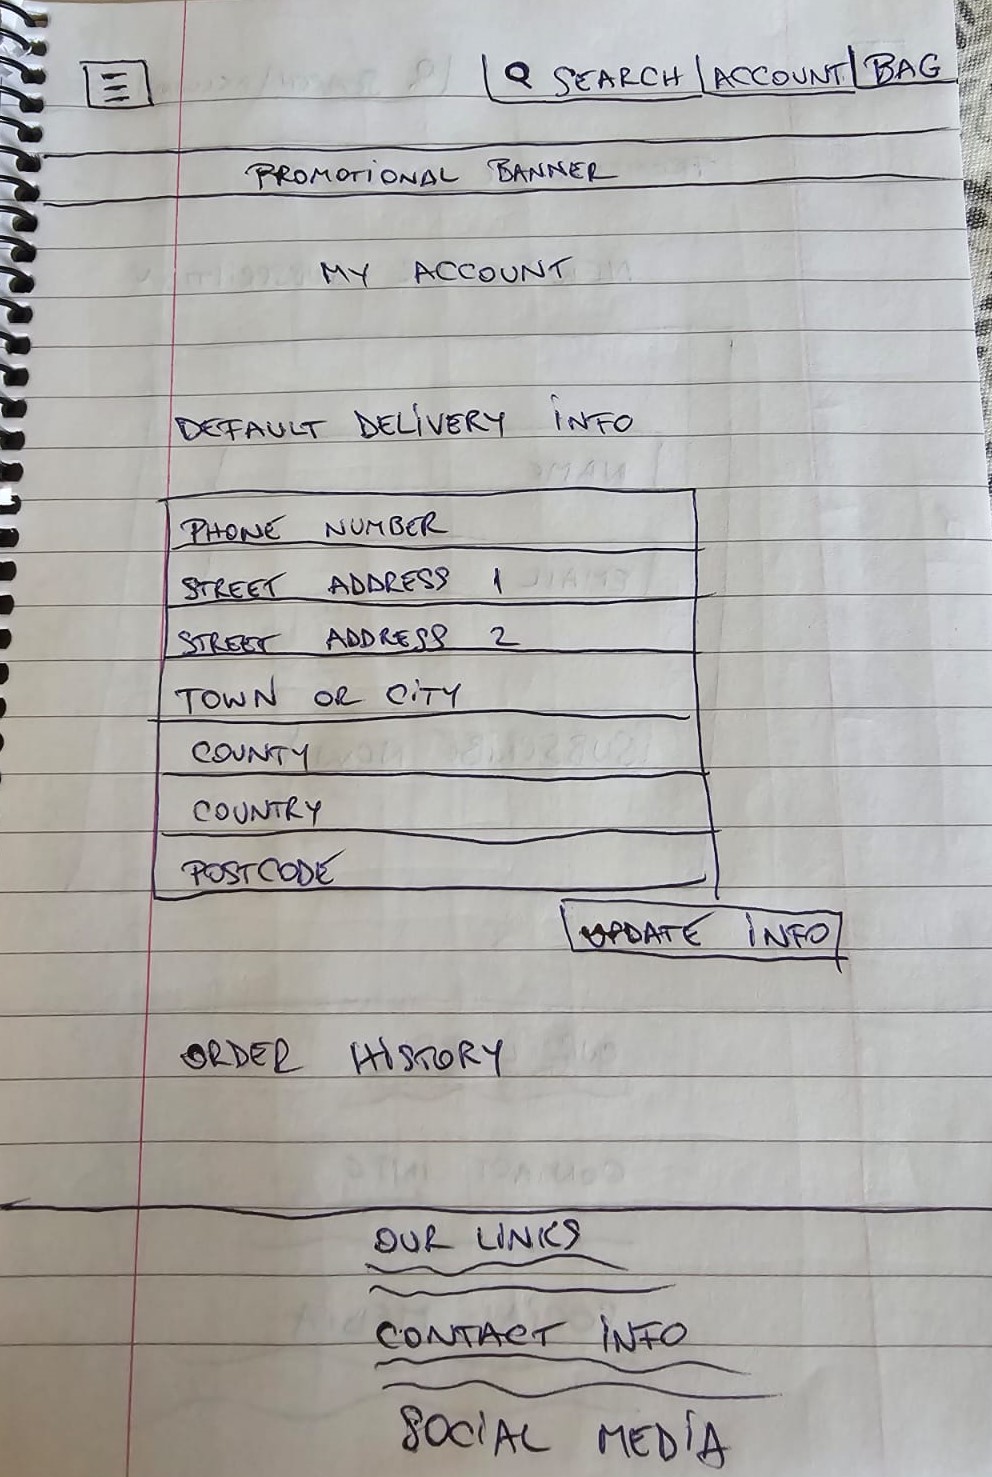 SEARCH ACCOUNT BAG
PROMOTIONAL BANNER
MY ACCOUNT
DEFAULT DELIVERY INFO
PHONE NUMBER
STREET ADDRESS 1
STREET ADDRESS 2
TOWN OR CITY
COUNTY
COUNTRY
POSTCODE
UPDATE INFO
ORDER HISTORY
OUR LINKS
CONTACT INFO
SOCIAL MEDIA